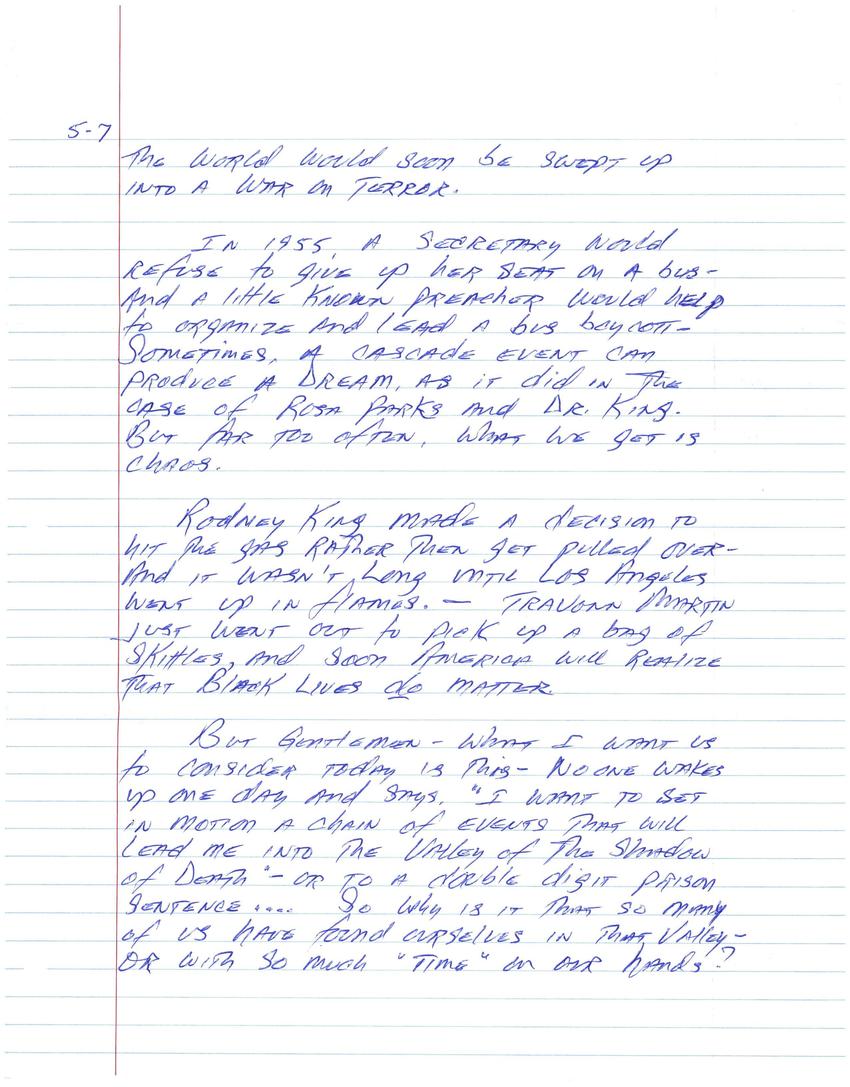 5-7
The World would soon be swept up
into a war on terror.
In 1955, a secretary would
refuse to give up her seat on a bus-
And a little known preacher would help
to organize and lead a bus boycott-
Sometimes, a cascade event can
produce a dream, as it did in the
case of Rosa Parks and Dr. King.
But far too often, what we get is
chaos.
Rodney King made a decision to
hit the gas rather then get pulled over-
And it wasn't long until Los Angeles
went up in flames. — Travonn Martin
just went out to pick up a bag of
Skittles, and soon America will realize
that Black Lives do matter.
But Gentlemen - what I want us
to consider today is this- No one wakes
up one day and says, "I want to set
in motion a chain of events that will
lead me into the Valley of the Shadow
of Death"- or to a double digit prison
sentence .... So why is it that so many
of us have found ourselves in that Valley-
or with so much "time" on our hands?